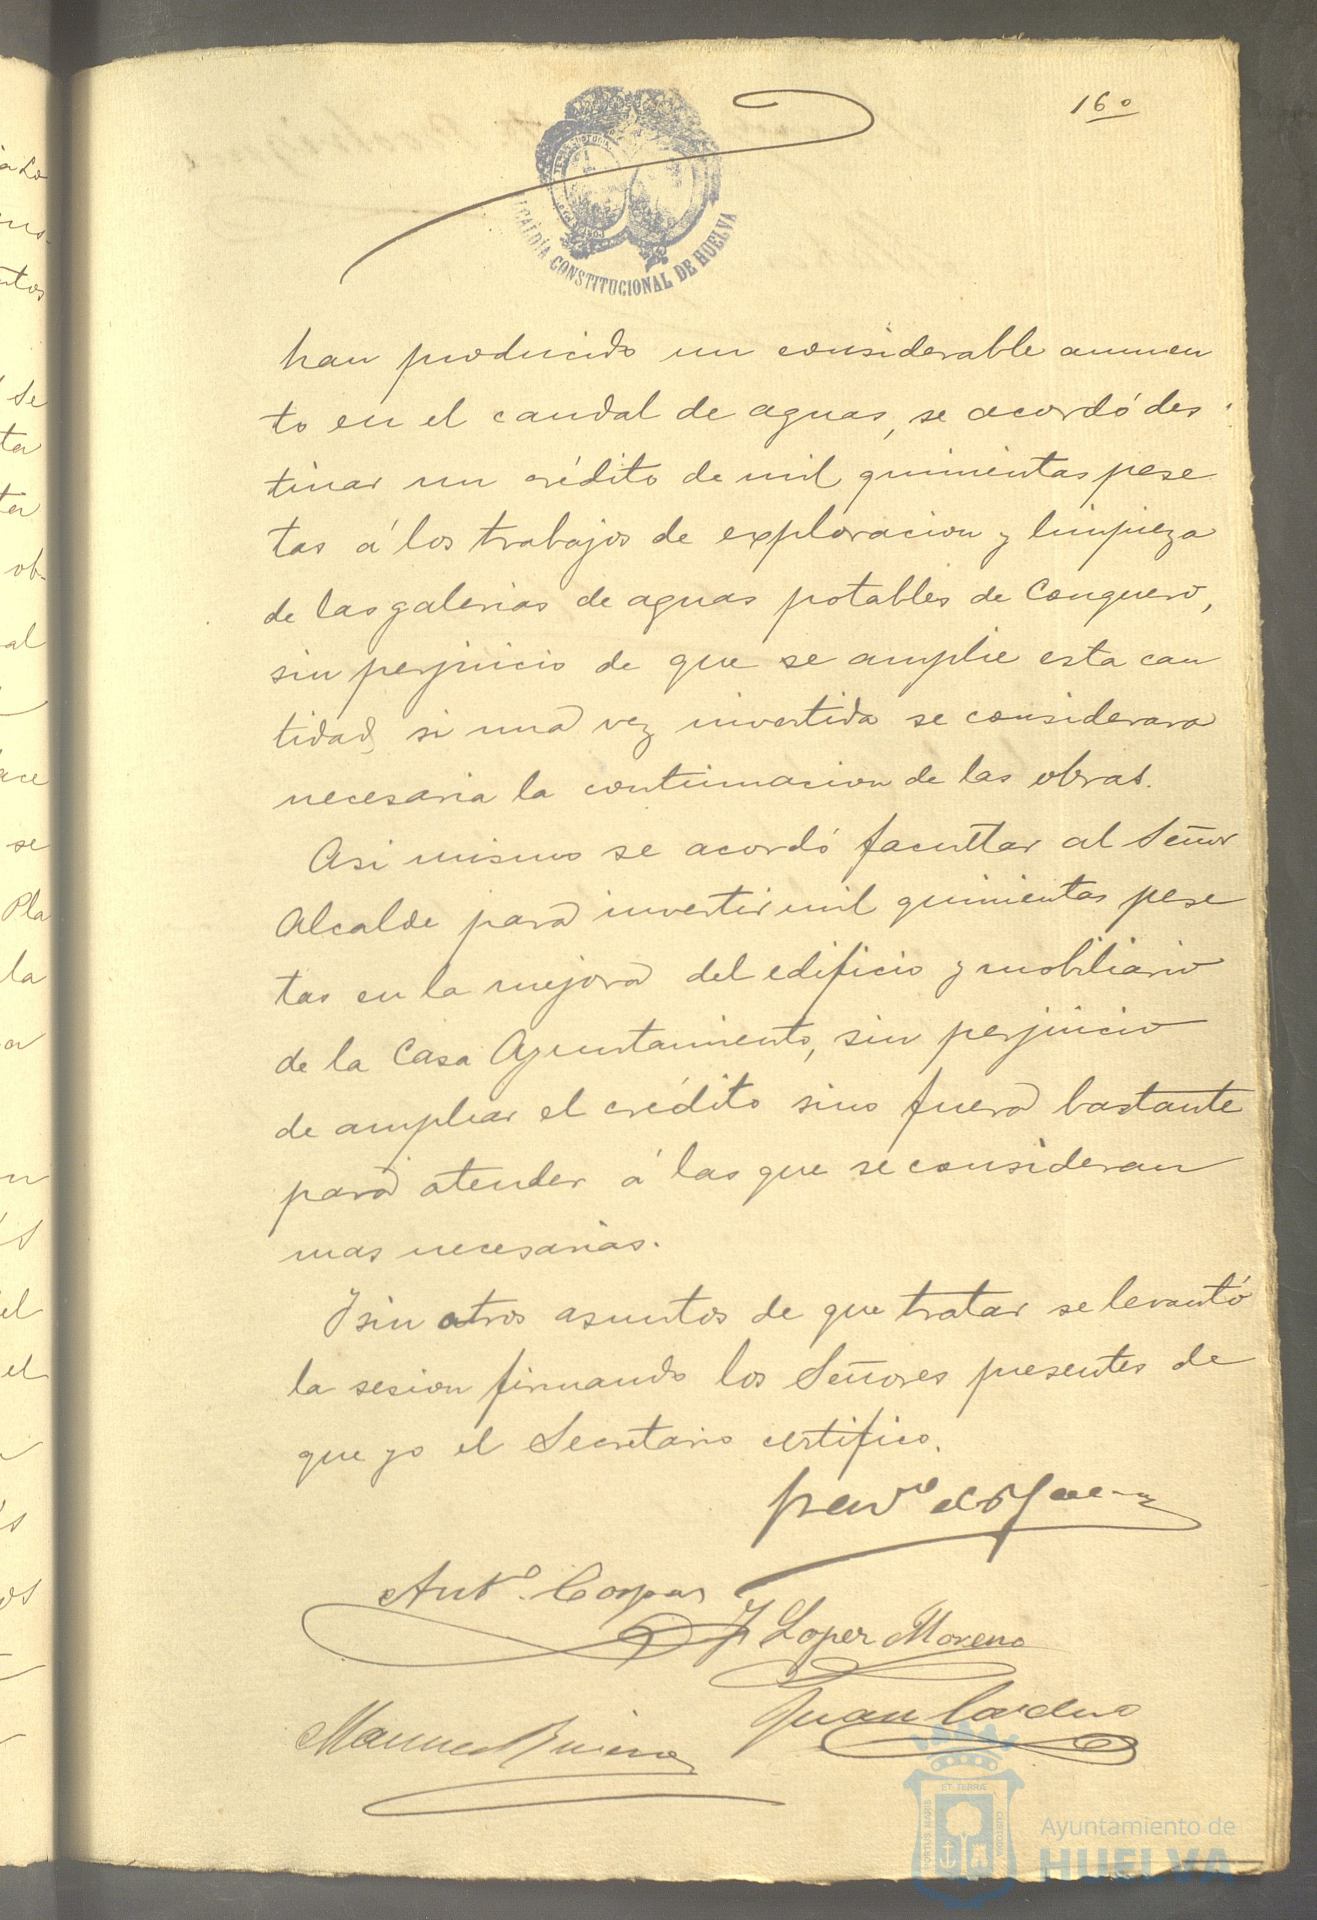 16º
ALCALDÍA CONSTITUCIONAL DE HUELVA
han producido un considerable aumen
to en el caudal de aguas, se acordó des
tinar un crédito de mil quinientas pese
tas á los trabajos de exploracion y limpieza
de las galerias de aguas potables de Conquero,
sin perjuicio de que se amplie esta can
tidad, si una vez invertida se considerara
necesaria la continuacion de las obras.
Asi mismo se acordó facultar al Señor
Alcalde para invertir mil quinientas pese
tas en la mejora del edificio y mobiliario
de la Casa Ayuntamiento, sin perjuicio
de ampliar el crédito sino fuera bastante
para atender á las que se consideran
mas necesarias.
Y sin otros asuntos de que tratar se levantó
la sesion firmando los Señores presentes de
que yo el Secretario certifico.
Antº.
J Lopez Moreno
Juan
Manuel
Ayuntamiento de
HUELVA